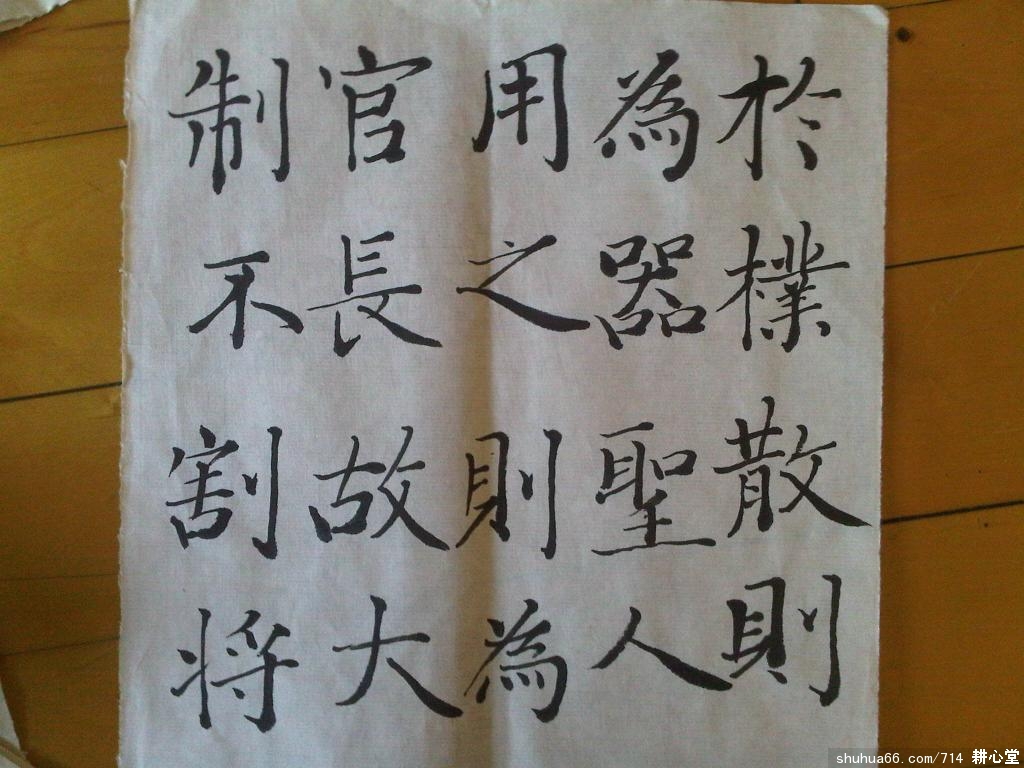 於樸散則
為器聖人
用之則為
官長故大
制不割将
shuhua66.com/714 耕心堂